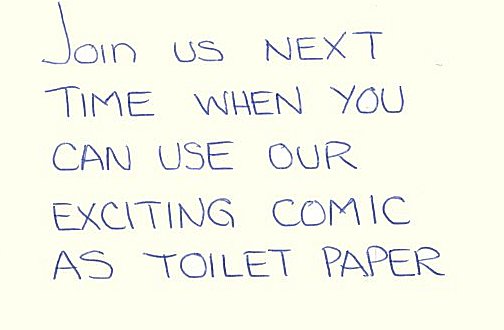 Join us NEXT
TIME WHEN YOU
CAN USE OUR
EXCITING COMIC
AS TOILET PAPER